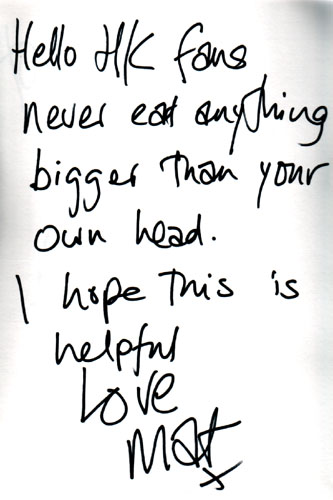 Hello HK fans
never eat anything
bigger than your
own head.
I hope this is
helpful
Love
Mat
x